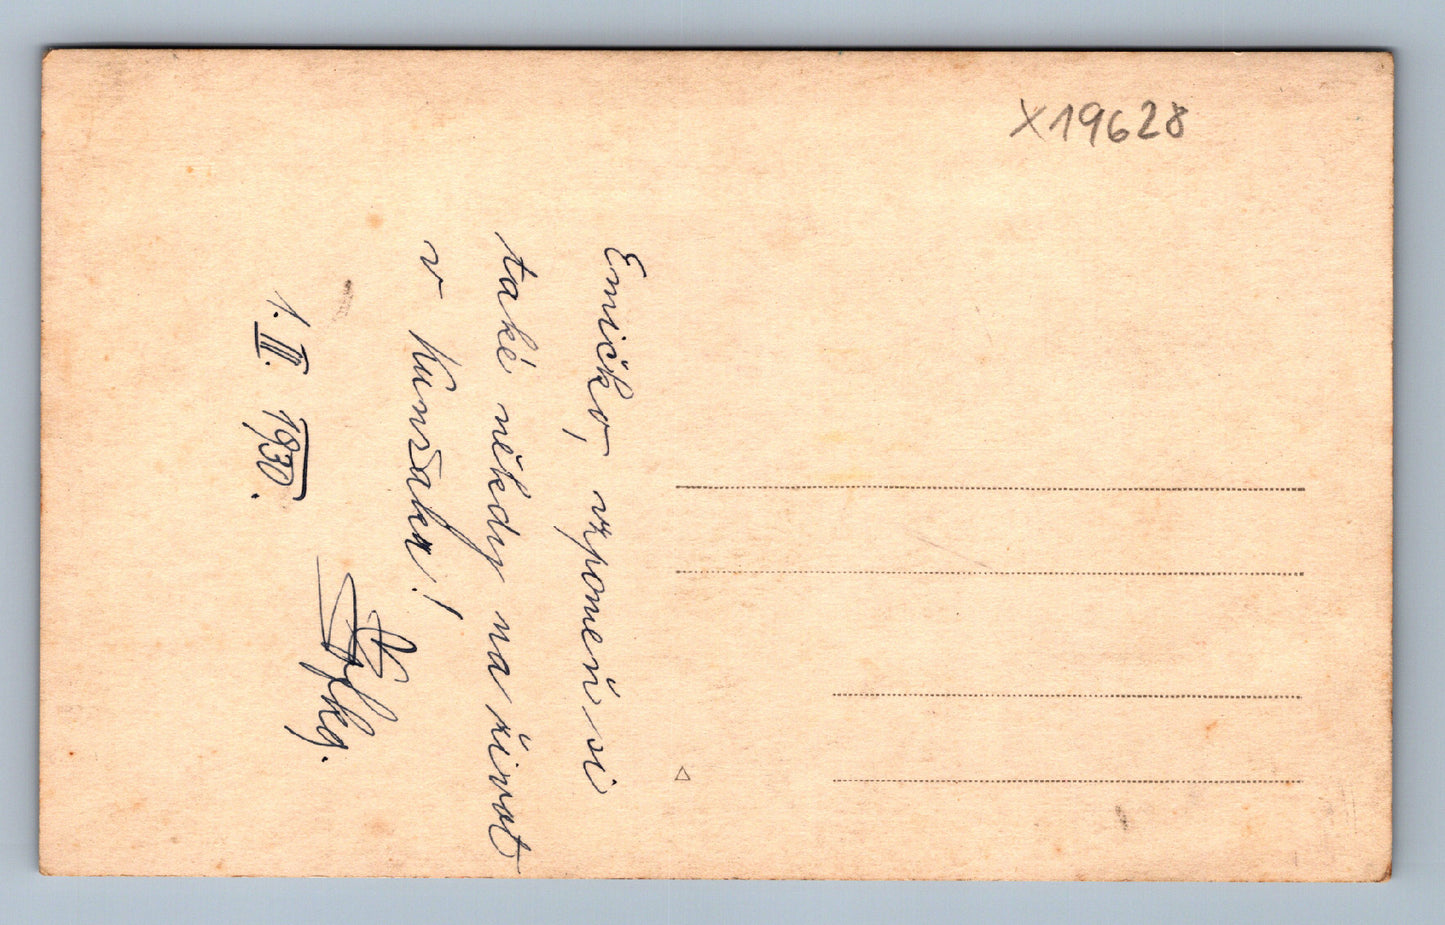 X19628
Emičko, vzpomeň si
také někdy na život
v Kunšaku!
1. III. 1930.